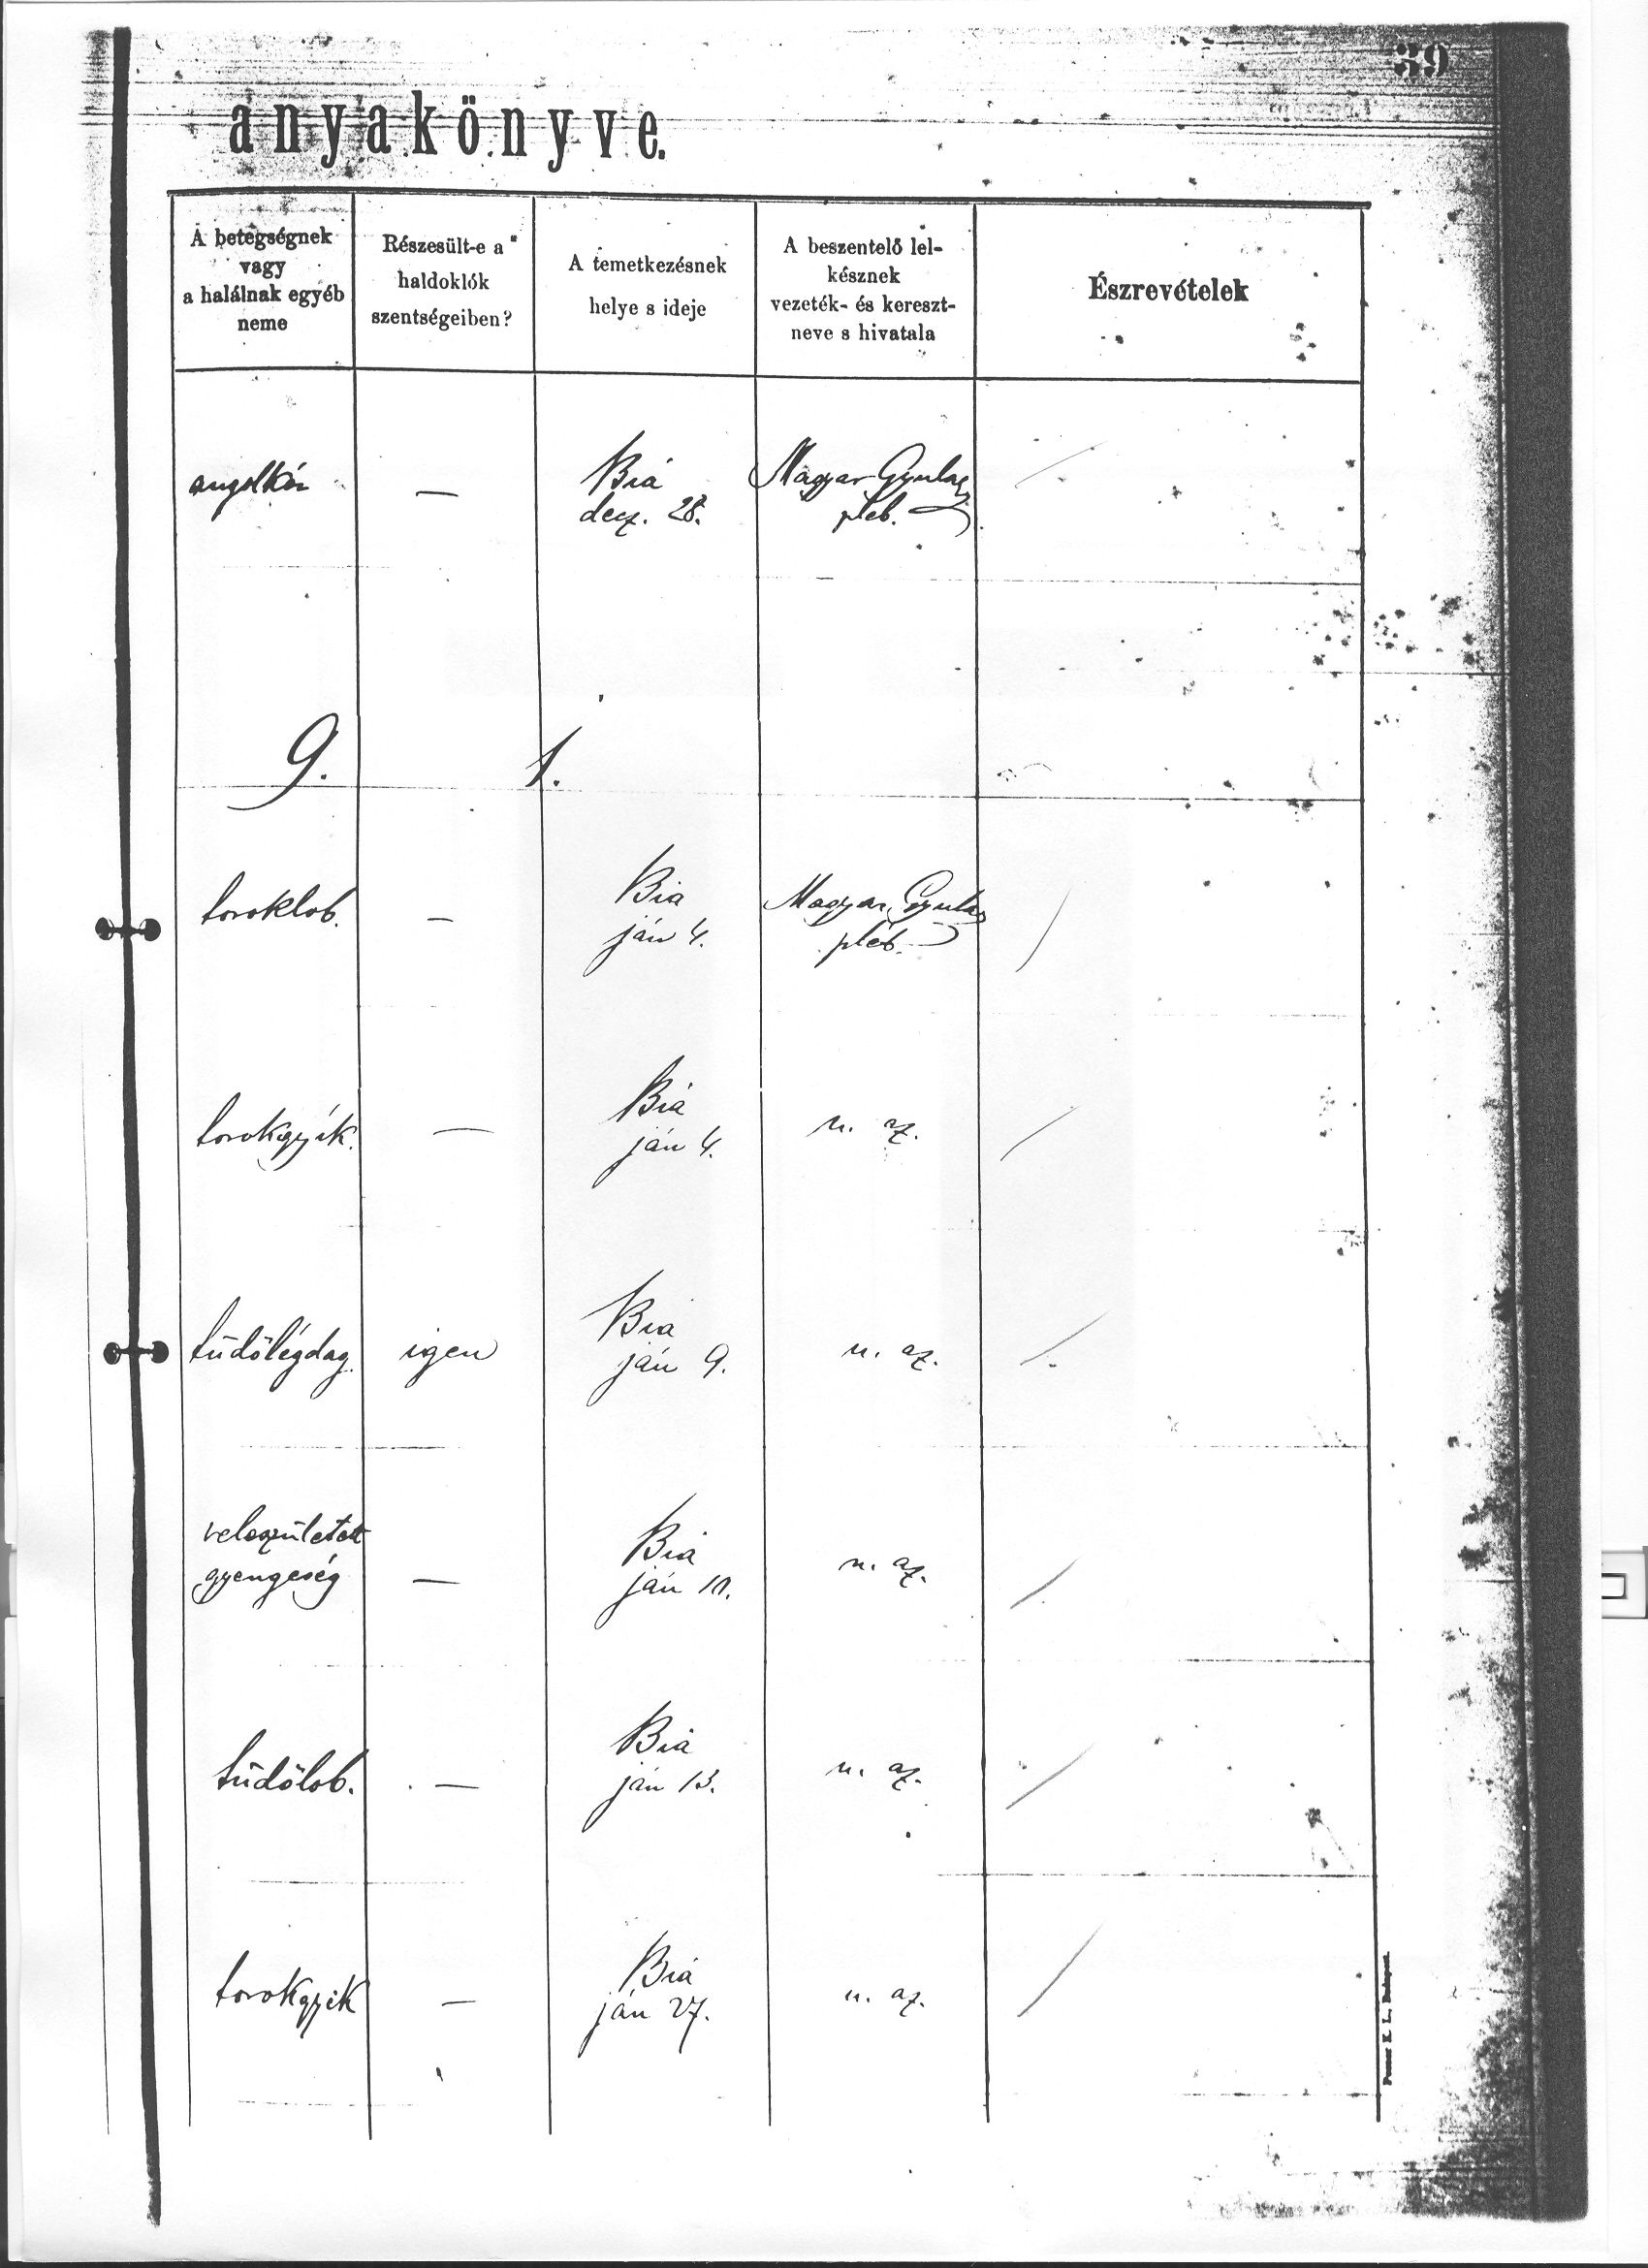 39
anyakönyve.
A betegségnek
vagy
a halálnak egyéb
neme
Részesült-e a
haldoklók
szentségeiben?
A temetkezésnek
helye s ideje
A beszentelő lel-
késznek
vezeték- és kereszt-
neve s hivatala
Észrevételek
angolkór
—
Bia
decz. 28.
Magyar Gyula
pleb.
9.
1.
toroklob.
—
Bia
ján 4.
Magyar Gyula
pléb.
torokgyík.
—
Biá
ján 4.
u. az.
tüdőlégdag.
igen
Bia
ján 9.
u. az.
veleszületett
gyengeség
—
Biá
ján
u. az.
tüdőlob.
—
Biá
ján 13.
u. az.
torokgyik
—
Biá
ján 27.
u. az.
Budapest.